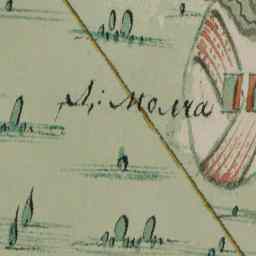 Д: Молча